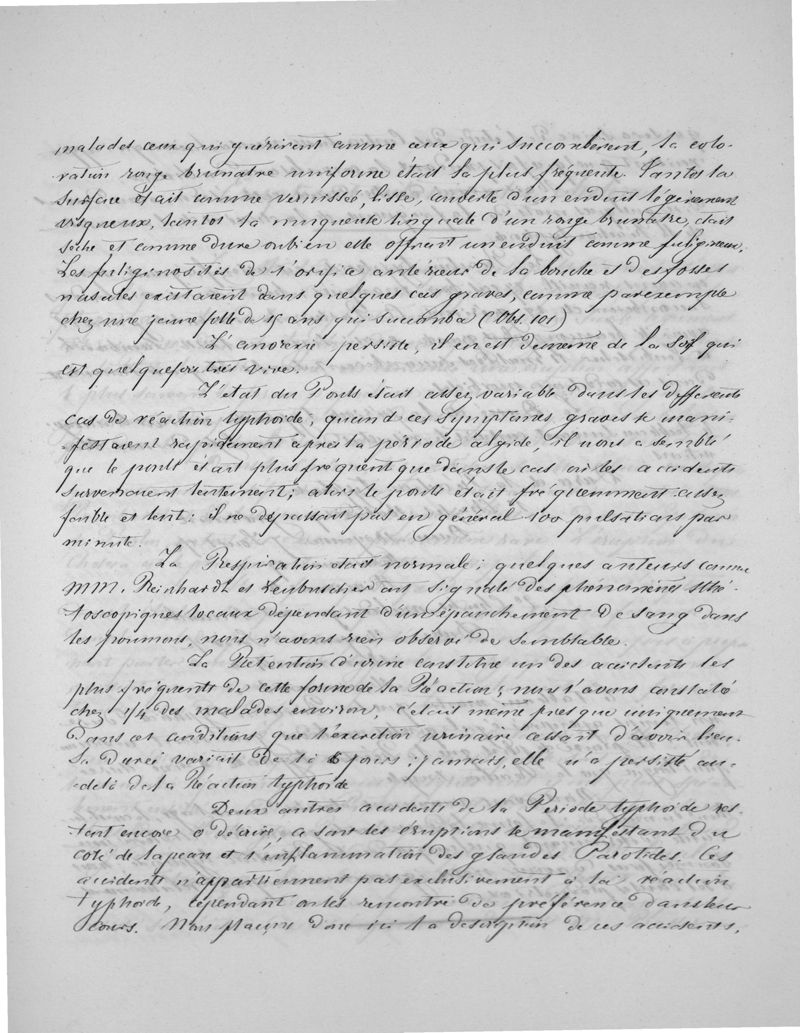 malades ceux qui guérirent comme ceux qui succombèrent, la colo-
ration rouge brunâtre uniforme était la plus fréquente. Tantot la
surface était comme vernissée, lisse, couverte d'un enduit légèrement
visqueux, tantot la muqueuse linguale d'un rouge brunatre, était
sèche et comme dure ou bien elle offrait un enduit comme fuligineux.
Les fuliginosités de l'orifice antérieur de la bouche et des fosses
nasales existaient dans quelques cas graves, comme par exemple
chez une jeune fille de 15 ans qui succomba (Obs. 101)
L'anorexie persiste, il en est de meme de la soif qui
est quelquefois très vive.
L'état du Pouls était assez variable dans les différents
cas de réaction typhoïde; quand ces symptômes graves se mani-
festaient rapidement après la période algide, il nous a semblé
que le pouls était plus fréquent que dans le cas où les accidents
survenaient lentement; alors le pouls était fréquemment assez
faible et lent: il ne dépassait pas en général 100 pulsations par
minute.
La Respiration était normale; quelques auteurs comme
MM. Reinhardt et Leubuscher ont signalé des phénomènes sthé-
toscopiques locaux dépendant d'un épanchement de sang dans
les poumons, nous n'avons rien observé de semblable.
La Rétention d'urine constitue un des accidents les
plus fréquents de cette forme de la Réaction; nous l'avons constaté
chez 1/4 des malades environ, c'était même presque uniquement
dans ces conditions que l'excrétion urinaire cessait d'avoir lieu.
Sa durée variait de 1 à jours; jamais, elle n'a persisté au-
delà de la Réaction typhoïde
Deux autres accidents de la Période typhoïde res-
tent encore à décrire, ce sont les éruptions se manifestant du
coté de la peau et l'inflammation des glandes Parotides. Ces
accidents n'appartiennent pas exclusivement à la réaction
typhoïde, cependant on les rencontre de préférence dans leur
cours. Nous plaçons donc ici la description de ces accidents.